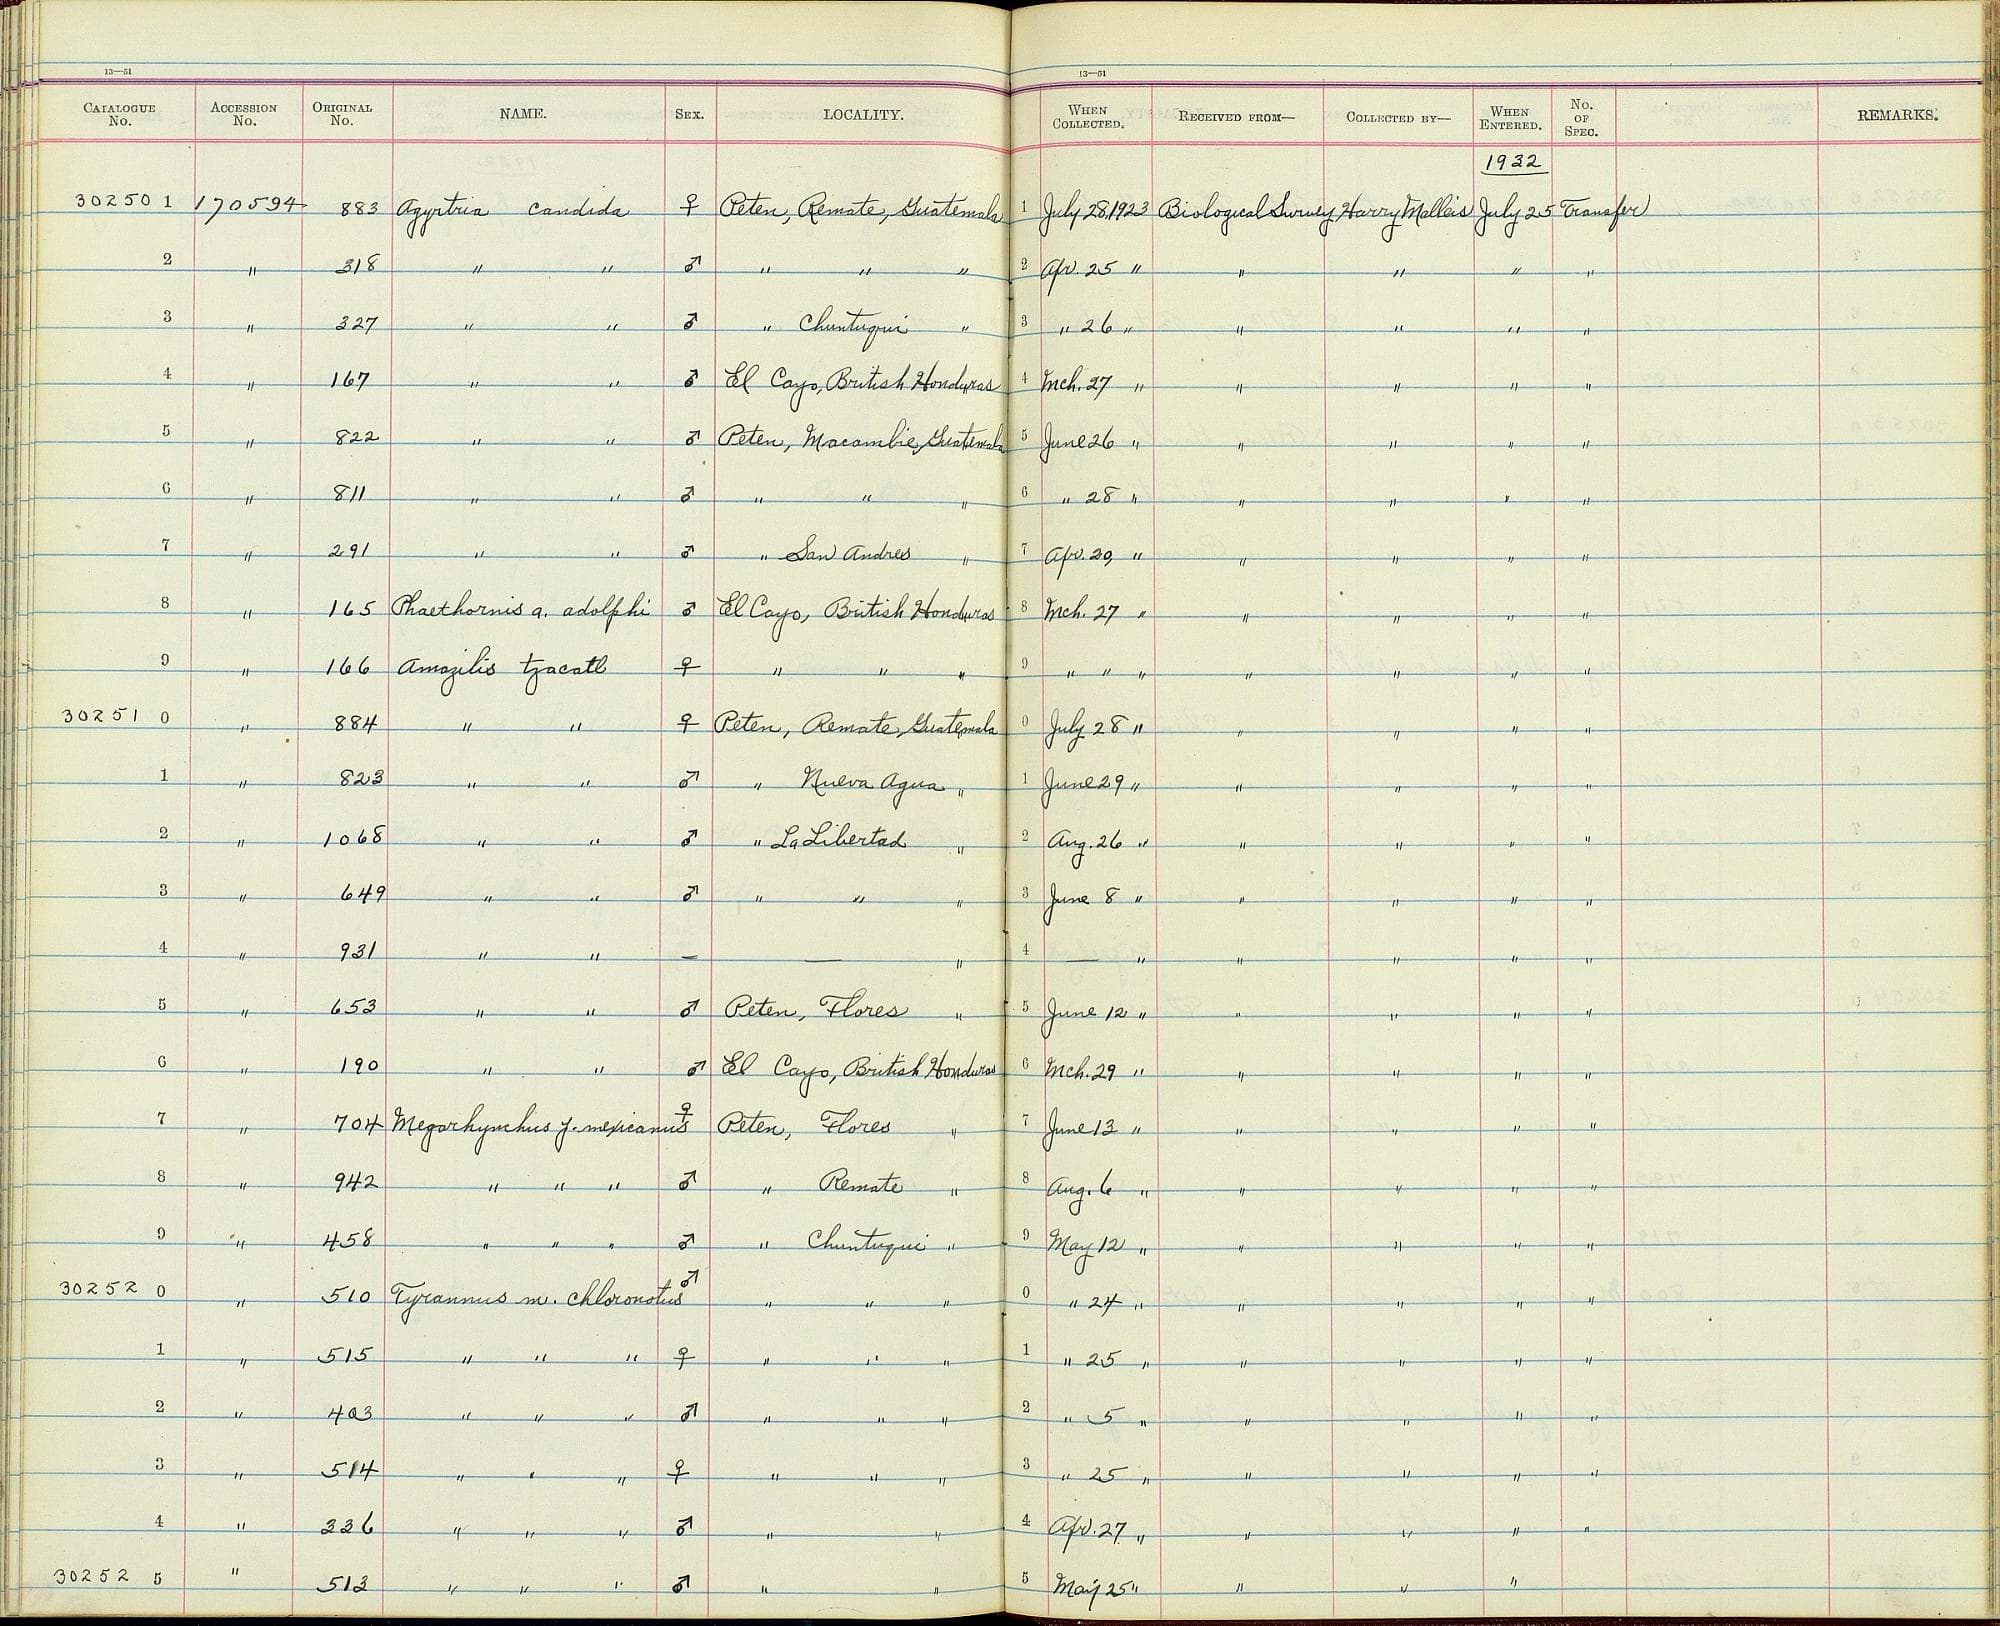 13—51 13—51
CATALOGUE No. ACCESSION No. ORIGINAL No. NAME. SEX. LOCALITY. WHEN COLLECTED. RECEIVED FROM— COLLECTED BY— WHEN ENTERED. No. OF SPEC. REMARKS.
1932
30250 1 170594 883 Agyrtria candida ♀ Peten, Remate, Guatemala 1 July 28, 1923 Biological Survey Harry Malleis July 25 Transfer
2 " 318 " " ♂ " " " 2 Apr. 25 " " " " "
3 " 327 " " ♂ " Chuntuqui " 3 " 26 " " " " "
4 " 167 " " ♂ El Cayo, British Honduras 4 Mch. 27 " " " " "
5 " 822 " " ♂ Peten, Macambie, Guatemala 5 June 26 " " " " "
6 " 811 " " ♂ " " " 6 " 28 " " " " "
7 " 291 " " ♂ " San Andres " 7 Apr. 20, " " " " "
8 " 165 Phaethornis a. adolphi ♂ El Cayo, British Honduras 8 Mch. 27 " " " " "
9 " 166 Amazilis tzacatl ♀ " " " 9 " " " " " " "
30251 0 " 884 " " ♀ Peten, Remate, Guatemala 0 July 28 " " " " "
1 " 823 " " ♂ " Nueva Agua " 1 June 29 " " " " "
2 " 1068 " " ♂ " La Libertad " 2 Aug. 26 " " " " "
3 " 649 " " ♂ " " " 3 June 8 " " " " "
4 " 931 " " — — " 4 — " " " " "
5 " 653 " " ♂ Peten, Flores " 5 June 12 " " " " "
6 " 190 " " ♂ El Cayo, British Honduras 6 Mch. 29 " " " " "
7 " 704 Megarhynchus p. mexicanus ♀ Peten, Flores " 7 June 13 " " " " "
8 " 942 " " " ♂ " Remate " 8 Aug. 6 " " " " "
9 " 458 " " " ♂ " Chuntuqui " 9 May 12 " " " " "
30252 0 " 510 Tyrannus m. chloronotus ♂ " " " 0 " 24 " " " " "
1 " 515 " " " ♀ " " " 1 " 25 " " " " "
2 " 403 " " " ♂ " " " 2 " 5 " " " " "
3 " 514 " " " ♀ " " " 3 " 25 " " " " "
4 " 336 " " " ♂ " " 4 Apr. 27 " " " " "
30252 5 " 513 " " " ♂ " " 5 May 25 " " " "